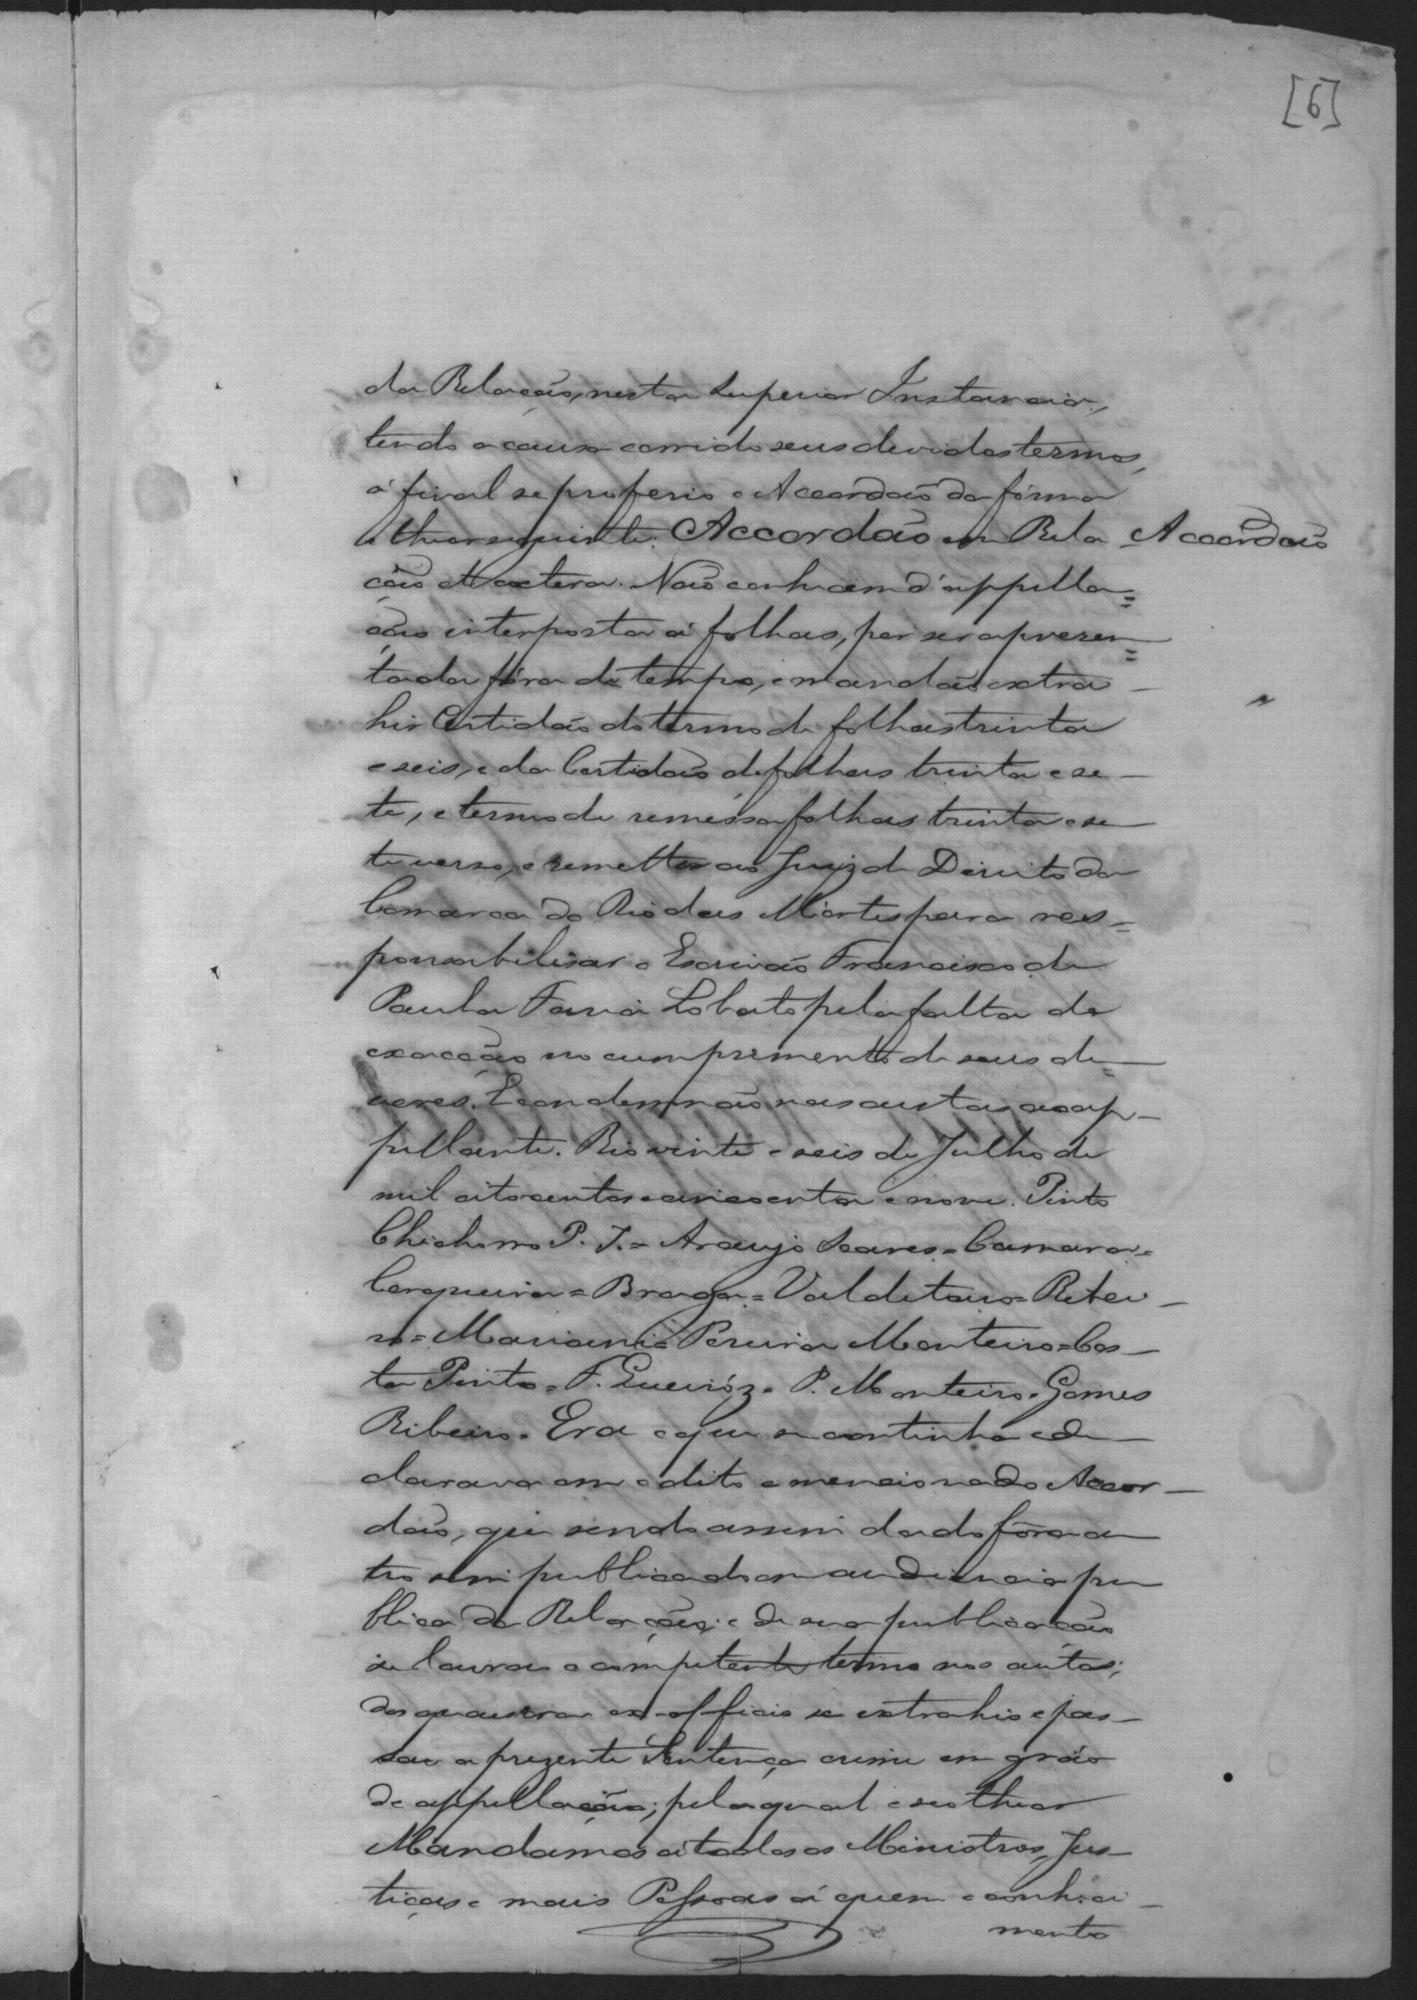 [6]
da Relação, nesta Superior Instancia,
tendo a causa corrido seus devidos termos,
á final se proferio o Accordaõ da fórma
e theor seguinte. Accordão em Rela
Accordaõ
ção et cætera. Naõ conhecem d'appella=
ção interposta á folhas, por ser aprezen=
tada fóra de tempo, e mandaõ extra-
hir Certidaõ do termo de folhas trinta
e seis, e da Certidaõ de folhas trinta e se-
te, e termo de reméssa folhas trinta e se
te verso, e remetter ao Juiz de Direito da
Comarca do Rio das Mórtes para res=
ponsabilisar o Escrivaõ Francisco de
Paula Faria Lobato pela falta de
exacçaõ no cumprimento de seus de=
veres. E condemnaõ nas custas ao ap-
pellante. Rio vinte e seis de Julho de
mil oitocentos e cincoenta e nove. Pinto
Chichorro P. I. = Araujo Soares = Camara =
Cerqueira = Braga = Valdetaro = Ribei-
ro = Mariani = Pereira Monteiro = Cos-
ta Pinto = F. Queiróz = P. Monteiro = Gomes
Ribeiro = Era o que se continha e de
clarava em o dito e mencionado Accor-
daõ, que sendo assim dado fôra ou
tro sim publicado em audiencia pu
blica da Relação; e de sua publicaçaõ
se lavrou o competente termo nos autos;
dos quaes ora ex-officio se extrahio e pas-
sou a prezente Sentença crime em gráo
de appellação; pela qual e seo theor
Mandâmos a todos os Ministros, Jus-
tiças e mais Pessoas á quem o conheci-
mento